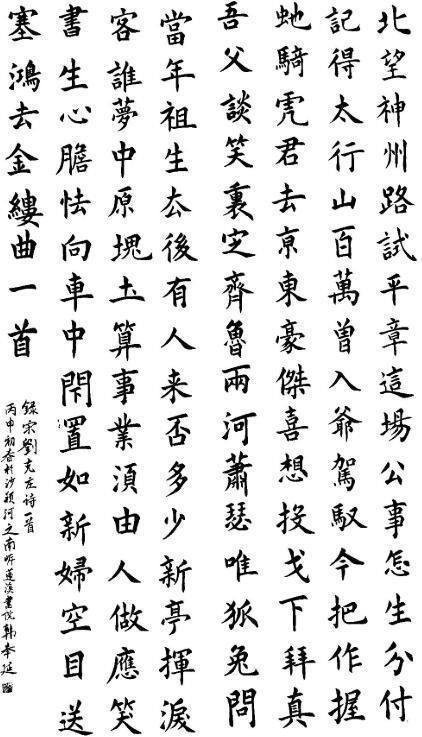 北望神州路試平章這場公事怎生分付
記得太行山百萬曾入爺駕馭今把作握
虵騎虎君去亰東豪傑喜想投戈下拜真
吾父談笑裏定齊魯兩河蕭瑟唯狐兔問
當年祖生去後有人来否多少新亭揮淚
客誰夢中原塊土算事業須由人做應笑
書生心膽怯向車中閇置如新婦空目送
塞鴻去金縷曲一首
錄宋劉克庄诗一首
丙申初春於沙颍河之南蓮溪書院韩奉廷